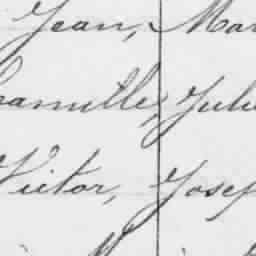 Jean, Mar
Camille, Juli
Victor, Josep